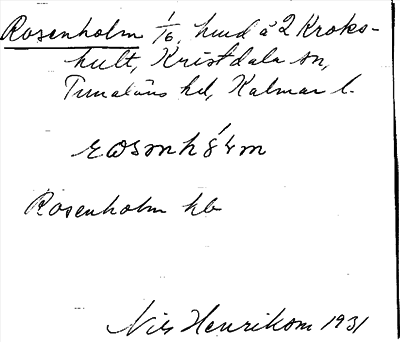 Rosenholm 1/16, hmd å 2 Kroks-
hult, Kristdala sn,
Tunaläns hd, Kalmar l.
Rosenholm kb
Nils Henrikson 1931